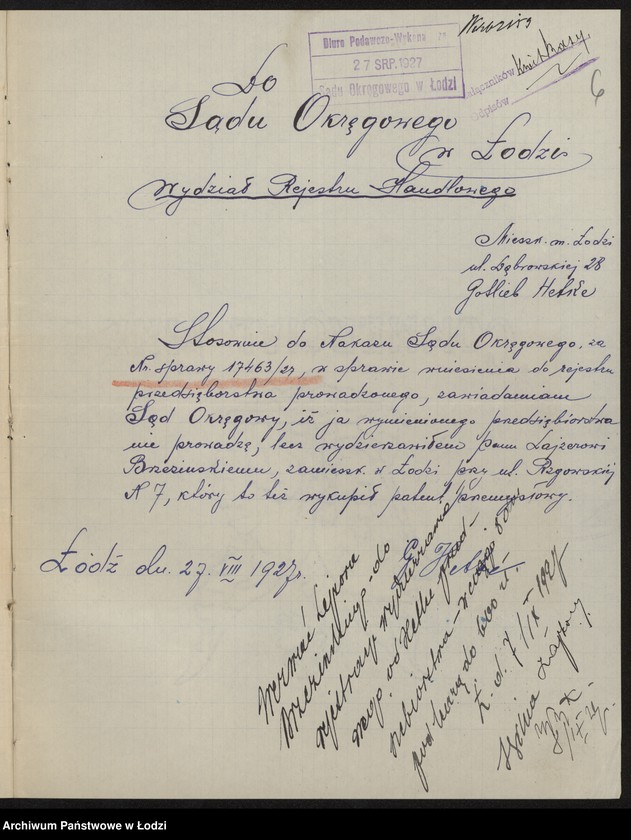 Biuro Podawczo-Wykona
27 SRP. 1927
Sądu Okręgowego w Łodzi
załączników
Odpisów
6
Do
Sądu Okręgowego
w Łodzi
Wydział Rejestru Handlowego
Mieszk. m. Łodzi
ul. Dąbrowskiej 28
Gotlieb Hetke
Stosownie do Nakazu Sądu Okręgowego, za
Nr. sprawy 17463/27, w sprawie wniesienia do rejestru
przedsiębiorstwa prowadzonego, zawiadamiam
Sąd Okręgowy, iż ja wymienionego przedsiębiorstwa
nie prowadzę, lecz wydzierżawiłem Panu Lajzerowi
Brzezinskiemu, zamieszk. w Łodzi przy ul. Rzgowskiej
N 7, który to też wykupił patent przemysłowy.
Łódź dn. 27. VIII 1927r.
G. Hetke
Wezwać Lejzora
Brzezińskiego do
rejestracji wydzierżawio
nego od Hetke przed-
siębiorstwa w ciągu
pod karą do 600 zł
Ł. d. 7/IX 1927
Archiwum Państwowe w Łodzi